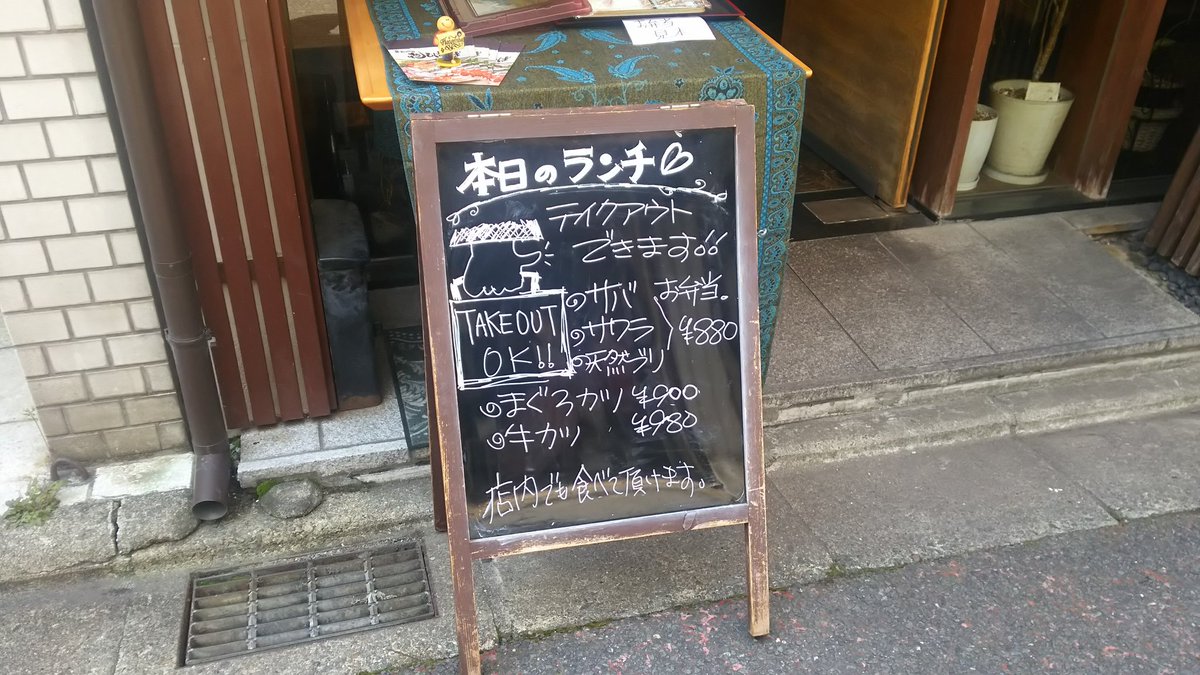 本日のランチ
テイクアウト
できます!!
TAKEOUT
OK!!
サバ
サワラ
天然ブリ
お弁当。
¥880
まぐろカツ ¥900
牛カツ ¥980
店内でも食べて頂けます。